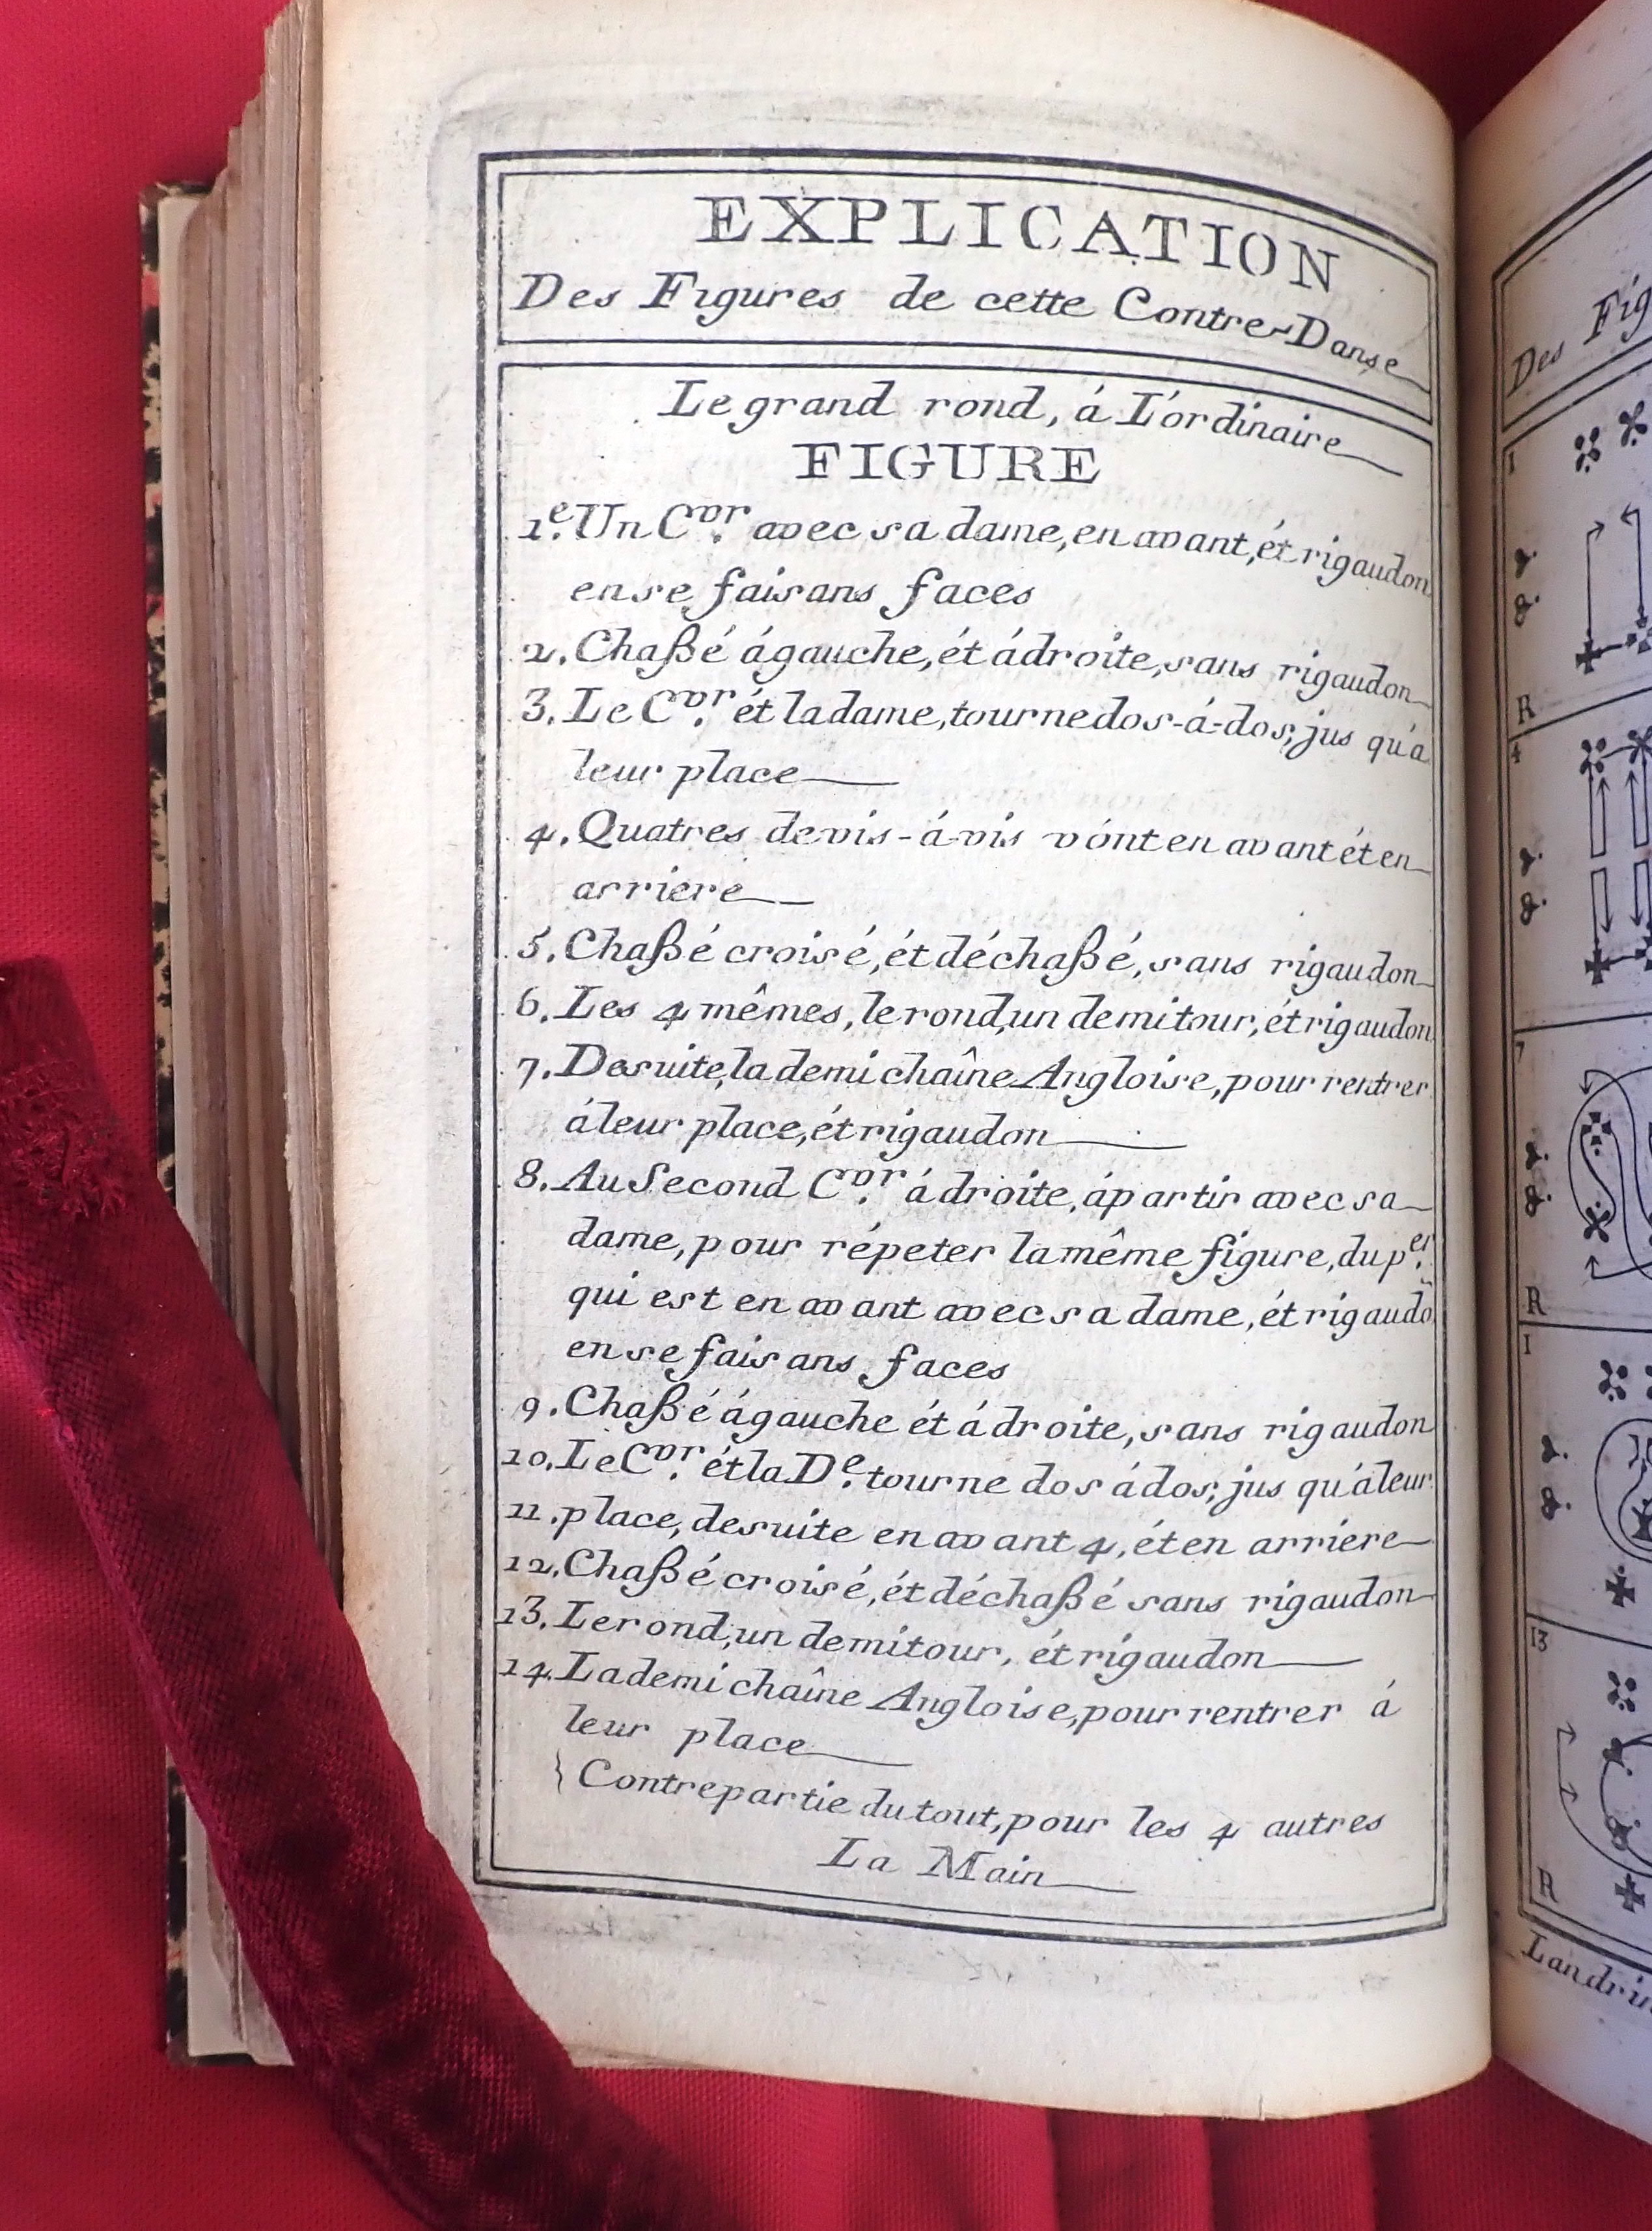 EXPLICATION
Des Figures de cette Contre-Danse
Le grand rond, á L'ordinaire
FIGURE
1.e Un C.vr avec sa dame, en avant, ét rigaudon
en se faisans faces
2. Chaßé á gauche, ét á droite, sans rigaudon
3. Le C.vr ét la dame, tourne dos-á-dos, jus qu'a
leur place
4. Quatres de vis-á-vis vónt en avant ét en
arriere
5. Chaßé croisé, ét déchaßé, sans rigaudon
6. Les 4 mêmes, le rond, un demi tour, ét rigaudon
7. De suite, la demi chaîne Angloise, pour rentrer
á leur place, ét rigaudon
8. Au Second C.vr á droite, á partir avec sa
dame, pour répeter la même figure, du p.er
qui est en avant avec sa dame, ét rigaudõ
en se faisans faces
9. Chaßé á gauche ét á droite, sans rigaudon
10. Le C.vr ét la D.e tourne dos á dos, jus qu'á leur
11. place, de suite en avant 4, ét en arriére
12. Chaßé croisé, ét déchaßé sans rigaudon
13. Le rond, un demi tour, ét rigaudon
14. La demi chaîne Angloise, pour rentrer á
leur place
} Contrepartie du tout, pour les 4 autres
La Main
Des Fig
1
R
4
7
R
1
13
R
Landrin